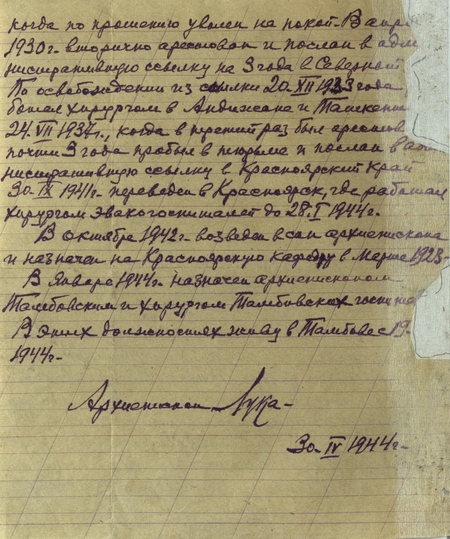 когда по прошению уволен на покой. В апре
1930 г. вторично арестован и послан в адм
нистративную ссылку на 3 года в Северный
По освобождении из ссылки 20.XII 1933 года
ботал хирургом в Андижане и Ташкенте
24.VII 1937 г., когда в третий раз был арестов
почти 3 года пробыл в тюрьме и послан в адм
нистративную ссылку в Красноярский Край
30.IX 1941 г. переведен в Красноярск, где работал
хирургом эвакогоспиталей до 28.I 1944 г.
В октябре 1942 г. возведен в сан архиепископа
и назначен на Красноярскую кафедру в марте
В Январе 1944 г. назначен архиепископом
Тамбовским и хирургом Тамбовских госпитал
В этих должностях живу в Тамбове с 19
1944 г.
Архиепископ Лука
30.IV 1944 г.